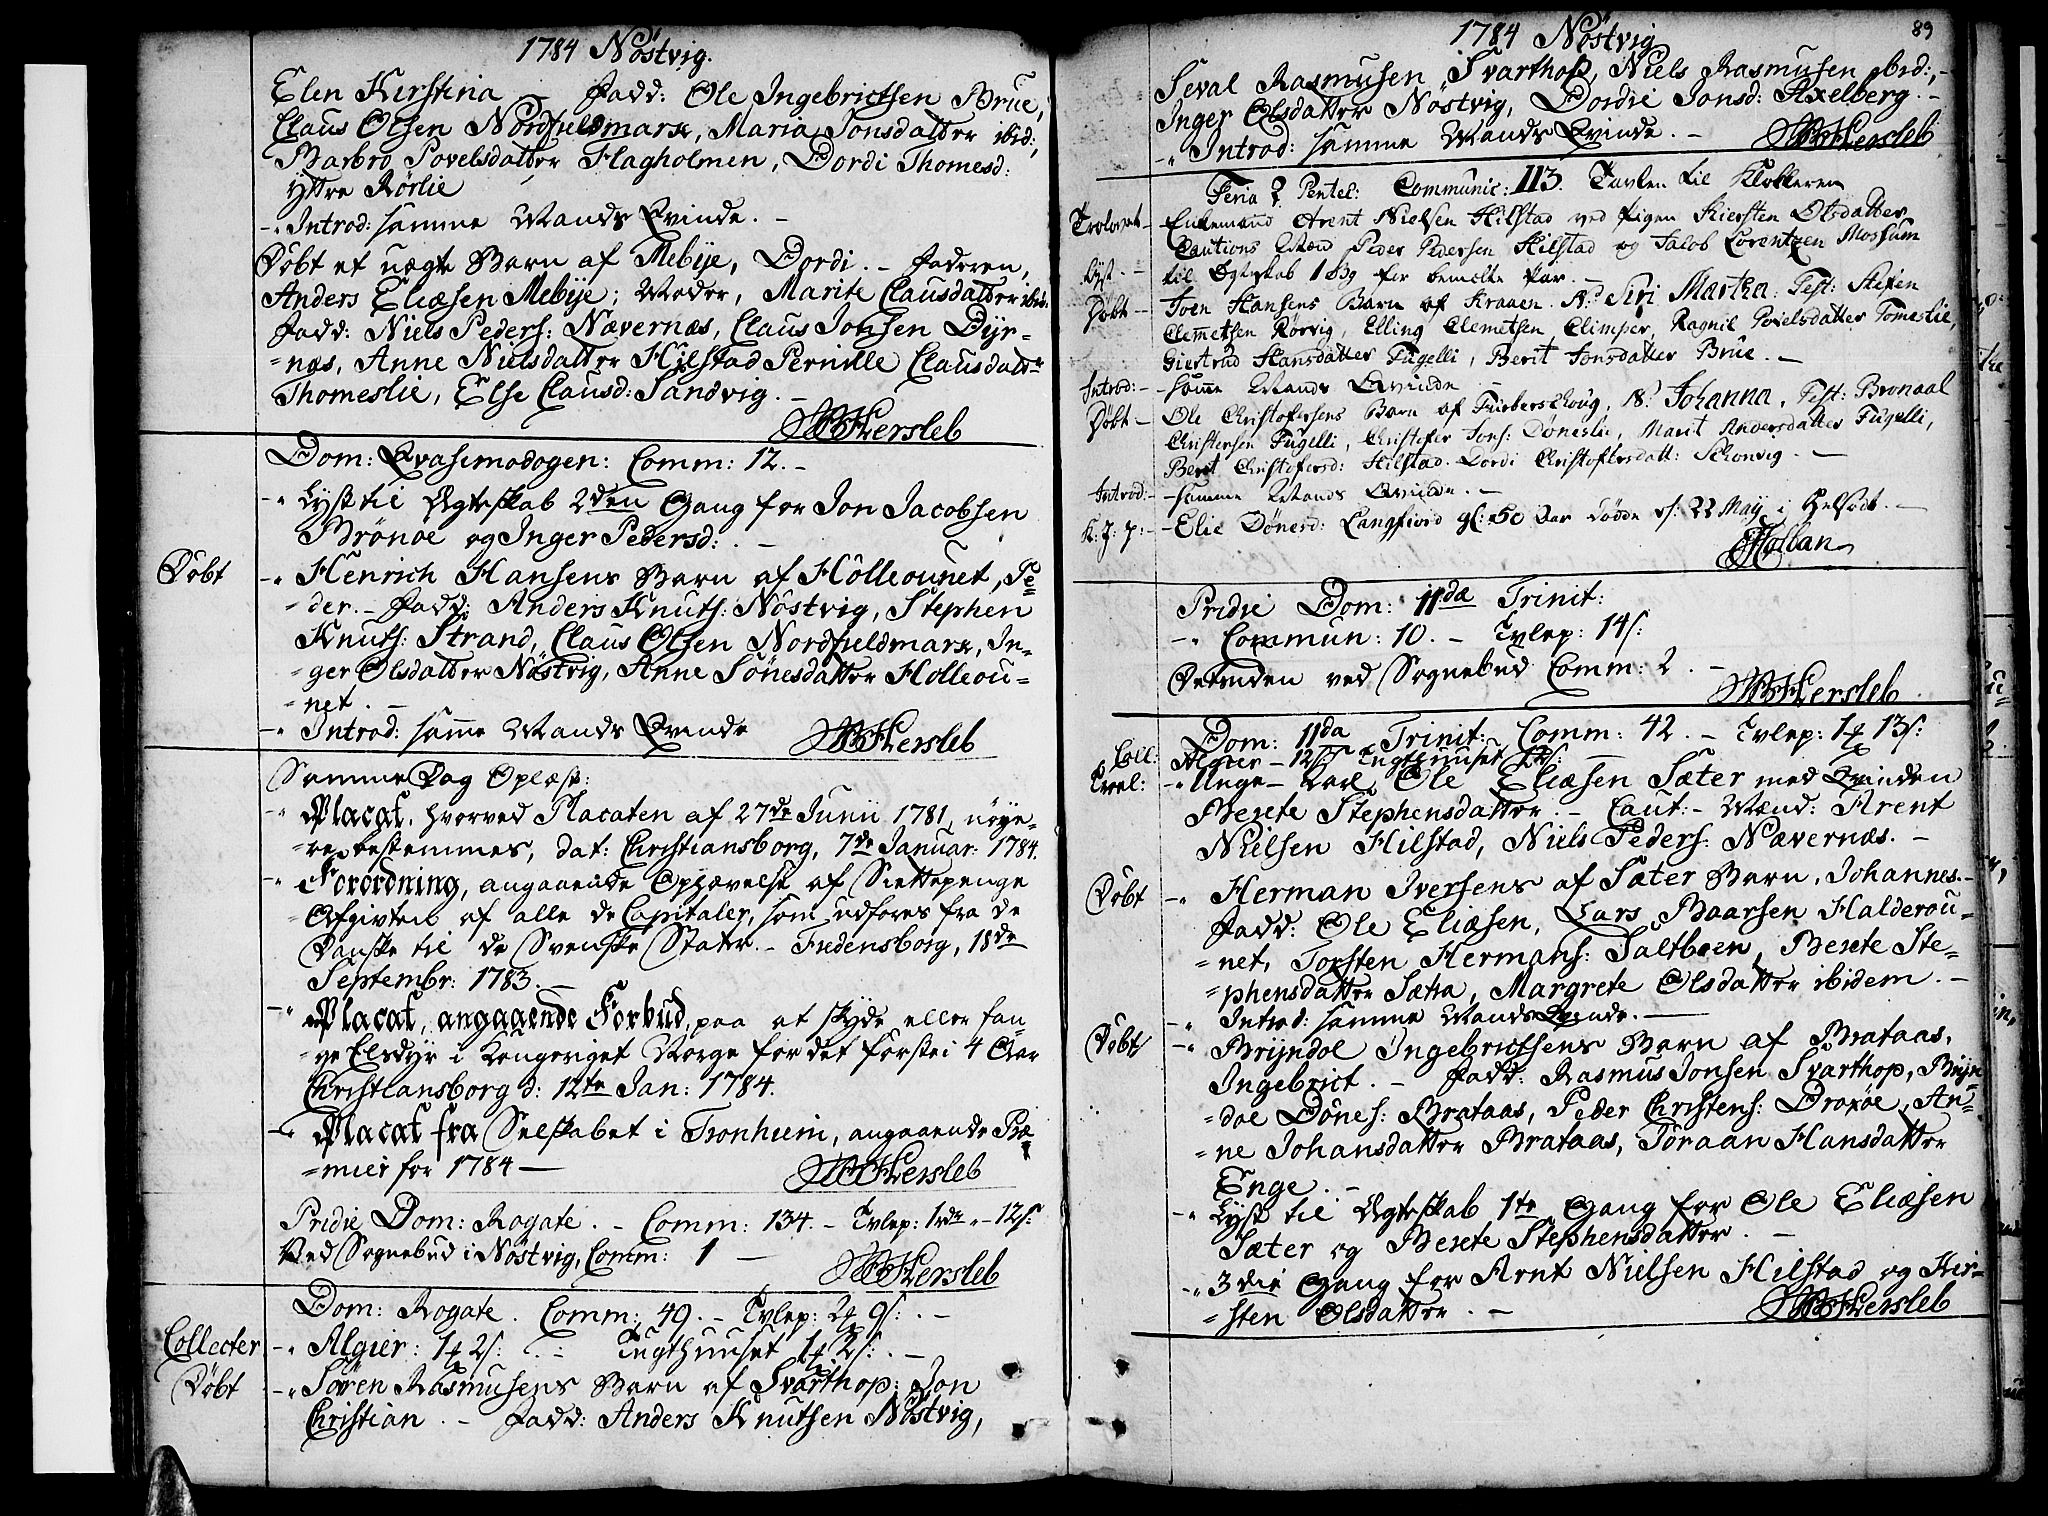 1784 Nöstvig.
Elen Kirstina – Fadd: Ole Ingebrictsen Brue,
Claus Olsen Nordfieldmark, Maria Jonsdatter ibid:,
Barbro Povelsdatter Flagholmen, Dordi Thomesd:
yttre Rörlie
-" Introd: samme Mands Qvinde. –
Döbt et uægte Barn af Mebye, Dordi. – Faderen,
Anders Eliæsen Mebÿe; Moder, Marite Clausdatter ibid:
Fadd: Niels Peders: Nævernæs, Claus Jonsen Dÿr-
=næs, Anne Nielsdatter Hilstad Pernille Clausdattr
Thomeslie, Else Clausd: Sandvig. –
Hersleb
Dom: Qvasimodogen: Comm: 12. –
-" Lyst til Ægteskab 2den Gang for Jon Jacobsen
Brönöe og Inger Pedersd: . –
Döbt -" Henrich Hansens Barn af Hölleounet, Pe-
=der. – Fadd: Anders Knuts: Nöstvig, Stephen
Knuts: Strand, Claus Olsen Nordfieldmark, In-
=ger Olsdatter Nöstvig, Anne Sönesdatter Holleou-
=net. –
-" Introd: samme Mands Qvinde
Hersleb
Samme Dag Oplæst:
-" Placat, hvorved Placaten af 27de Junii 1781, nöye-
=re bestemmes, dat: Christiansborg, 7de Januar: 1784.
-" Forordning, angaaende Ophævelse af Siettepenge
Afgivten af alle de Capitaler, som udföres fra de
Danske til de Svenske Stater. – Fredensborg, 18de
Septembr: 1783. –
-" Placat, angaaende Forbud, paa at skyde eller fan-
=ge Elsdyr i Kongeriget Norge for det förste i 4 Aar
Christiansborg d: 12te Jan: 1784.
-" Placat fra Selskabet i Tronhiem, angaaende Præ-
=mier for 1784 –
Hersleb
Pridie Dom: Rogate. – Comm: 134. – Tvlep: 1rdr " – 12s:
Ved Sognebud i Nöstvig, Comm: 1 –
Hersleb
Dom: Rogate. Comm: 49. – Tvlep: 2 9s: . –
Collecter -" Algier: 1 2s: . – Tugthuuset 1 2s: . –
Döbt -" Sören Rasmusens Barn af Svarthop: Jon
Christian. – Fadd: Anders Knutsen Nöstvig,
1784 Nöstvig 89
Seval Rasmusen, Svarthop, Niels Rasmusen ibid:, –
Inger Olsdatter Nöstvig, Dordie Jonsd: Axelberg. –
-" Introd: samme Mands Qvinde. –
Hersleb
Feria 2 Pentec: Communic: 113. Tavlen til Klokkeren
Trolovet – Enkemand Arent Nielsen Hilstad ved Pigen Kiersten Olsdatter
Cautions Mænd Peder Pedersen Hilstad og Jacob Lorentzen Mossum
Lyst. – til Ægteskab 1 Gg for bemelte Par. –
Döbt – Joen Hansens Barn af Kraaen. N: Siri Martha. Test: Steffen
Clemetsen Rörvig, Elling Clemetsen Climper, Ragnil Povelsdatter Tomeslie,
Giertrud Hansdatter Fugelli, Berit Jonsdatter Brue. –
Introd: – samme Mands Qvinde –
Döbt – Ole Christofersens Barn af Furberschoug, N: Johanna, Test: Bronaal
Christensen Fugelli, Christofer Jons: Dönesli, Marit Andersdatter Fugelli,
Berit Christofersd: Hilstad. Dordi Christofersdatt: Schonvig. –
Introd: – samme Mands Qvinde. –
K: J: P: – Elie Dönesd: Langfiord gl: 50 Aar döde d: 22 May i Helsot. –
Hollan
Pridie Dom: 11dæ Trinit:
-" Commun: 10. – Tvlep: 14s:
Betienden ved Sognebud Comm: 2. –
Hersleb
Dom: 11da Trinit: Comm: 42. – Tvlep: 1 13s:
Coll: Algier – 12s: Tugthuuset
Trol: -" Unge-Karl, Ole Eliæsen Sæter med Qvinden
Berete Stephensdatter. – Caut: – Mænd: Arent
Nielsen Hilstad, Niels Peders: Nævernæs. –
Döbt -" Herman Iversens af Sæter Barn, Johannes. –
Fadd: Ole Eliæsen, Lars Baarsen Halderou-
=net, Torsten Hermans: Saltboen, Berete Ste-
=phensdatter Sætra, Margrete Olsdatter ibidem. –
-" Introd: samme Mands Qvinde. –
Döbt -" Bryndol Ingebrictsens Barn af Brataas,
Ingebrict. – Fadd: Rasmus Jonsen Svarthop, Bryn-
=dol Dönes: Brataas, Peder Christens: Droxöe, An-
=ne Johansdatter Brataas, Toraan Hansdatter
Enge. –
-" Lyst til Ægteskab 1te Gang for Ole Eliæsen
Sæter og Berete Stephensdatter. –
-" 3die Gang for Arnt Nielsen Hilstad og Kir-
=sten Olsdatter. –
Hersleb